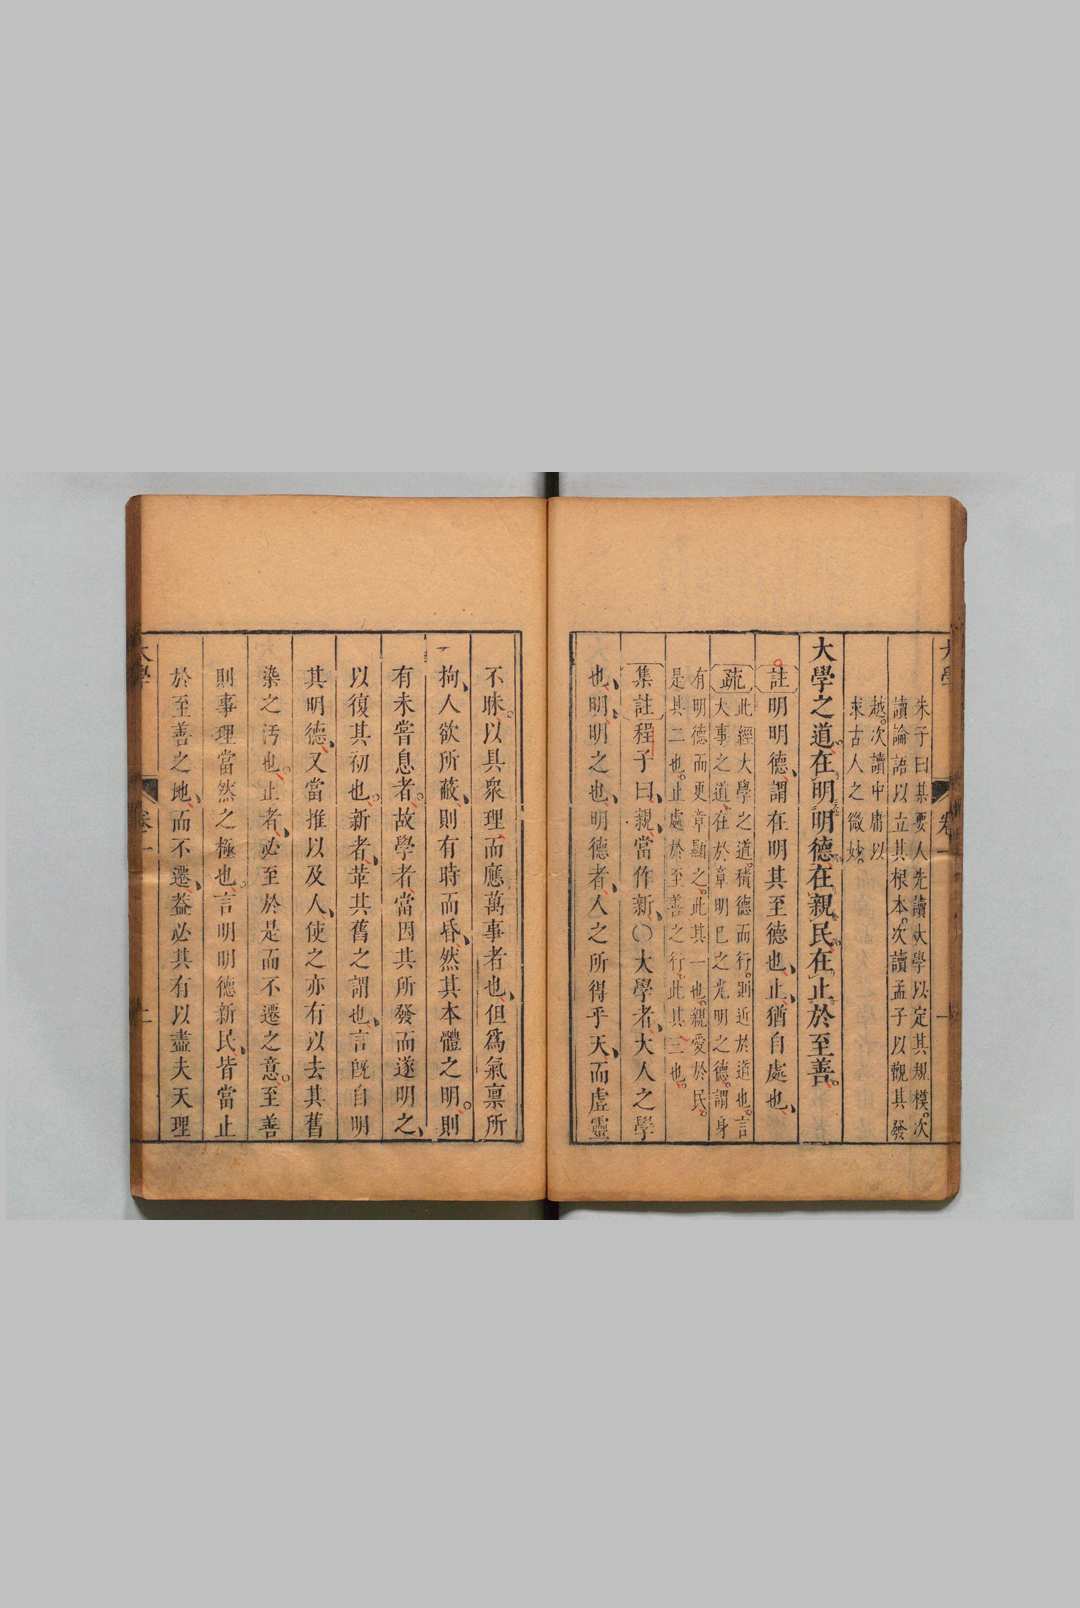 朱子曰某要人先讀大學以定其規模次
讀論語以立其根本次讀孟子以觀其發
越次讀中庸以
求古人之微妙
大學之道在明明德在親民在止於至善
註明明德謂在明其至德也止猶自處也
疏此經大學之道積德而行則近於道也言
大事之道在於章明已之光明之德謂身
有明德而更章顯之此其一也親愛於民
是其二也止處於至善之行此其三也
集註程子曰親當作新〇大學者大人之學
也明明之也明德者人之所得乎天而虛靈
不昧以具衆理而應萬事者也但爲氣禀所
拘人欲所蔽則有時而昏然其本體之明則
有未嘗息者故學者當因其所發而遂明之
以復其初也新者革其舊之謂也言旣自明
其明德又當推以及人使之亦有以去其舊
染之汚也止者必至於是而不遷之意至善
則事理當然之極也言明明德新民皆當止
於至善之地而不遷葢必其有以盡夫天理
大學 卷一 二